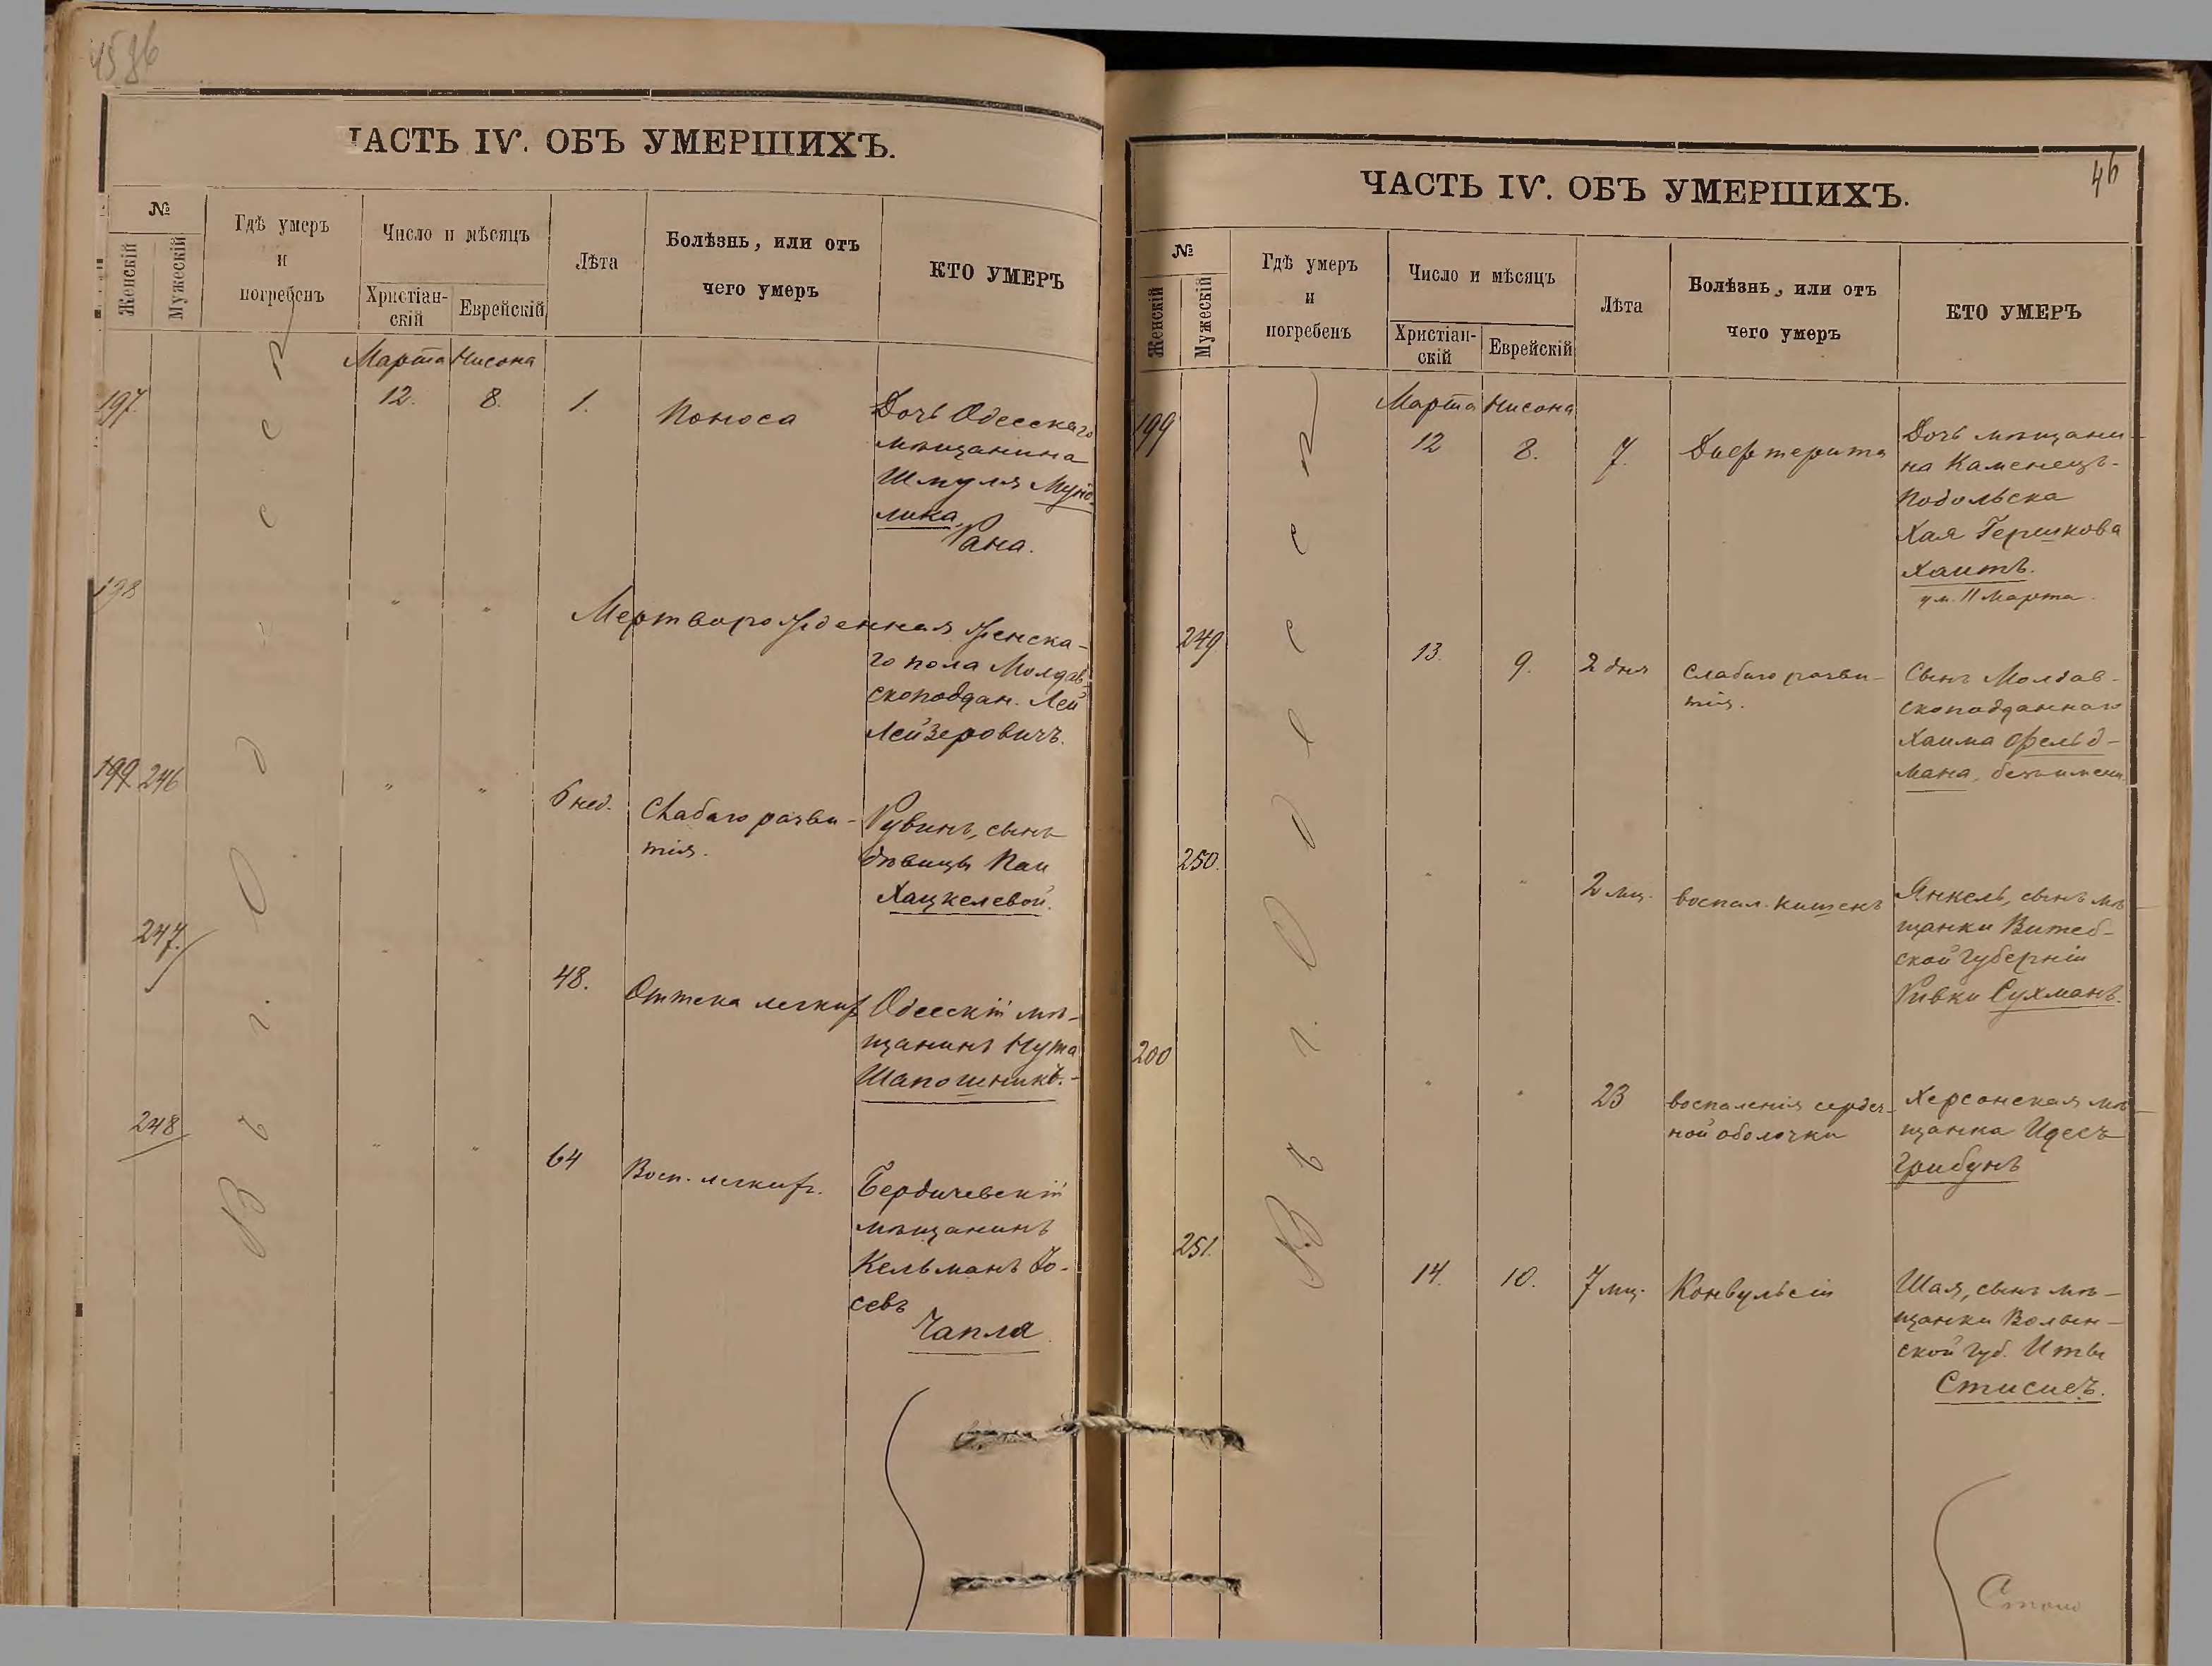 ЧАСТЬ IV. ОБЪ УМЕРШИХЪ.
№
Женскій
Мужескій
Гдѣ умеръ
и
погребенъ
Число и мѣсяцъ
Христіан-
скій
Еврейскій
Лѣта
Болѣзнь, или отъ
чего умеръ
КТО УМЕРЪ
Въ г. Одессѣ
Марта Нисона
197. 12. 8. 1. Поноса
Дочь Одесскаго
мѣщанина
Шмуля Мунд-
лика,
Рана.
198 " " Мертворожденная женска-
го пола Молдав-
скоподдан. Леи
Лейзеровичъ.
199 246 " " 6 нед. Слабаго разви-
тія.
Рувинъ, сынъ
дѣвицы Паи
Хацкелевой.
247. " " 48. Оттека легкихъ
Одесскій мѣ-
щанинъ Нута
Шапошникъ.-
248 " " 64 Восп. легкихъ.
Бердичевскій
мѣщанинъ
Кельманъ Іо-
севъ
Чапля.
46
ЧАСТЬ IV. ОБЪ УМЕРШИХЪ.
№
Женскій
Мужескій
Гдѣ умеръ
и
погребенъ
Число и мѣсяцъ
Христіан-
скій
Еврейскій
Лѣта
Болѣзнь, или отъ
чего умеръ
КТО УМЕРЪ
Въ г. Одессѣ
Марта Нисона
199 12 8. 7. Дифтерита
Дочь мѣщани-
на Каменецъ-
Подольска
Хая Гершкова
Хаитъ.
ум. 11 Марта.
249 13. 9. 2 дня Слабаго разви-
тія.
Сынъ Молдав-
скоподданнаго
Хаима Фельд-
мана, безъ имени.
250. " " 2 мц. воспал. кишекъ
Янкель, сынъ мѣ-
щанки Витеб-
ской губерніи
Ривки Сухманъ.
200 " " 23 воспаленія сердеч-
ной оболочки
Херсонская мѣ-
щанка Идесъ
Грибунъ
251. 14. 10. 7 мц. Конвульсіи
Шая, сынъ мѣ-
щанки Волын-
ской губ. Итты
Стисисъ.